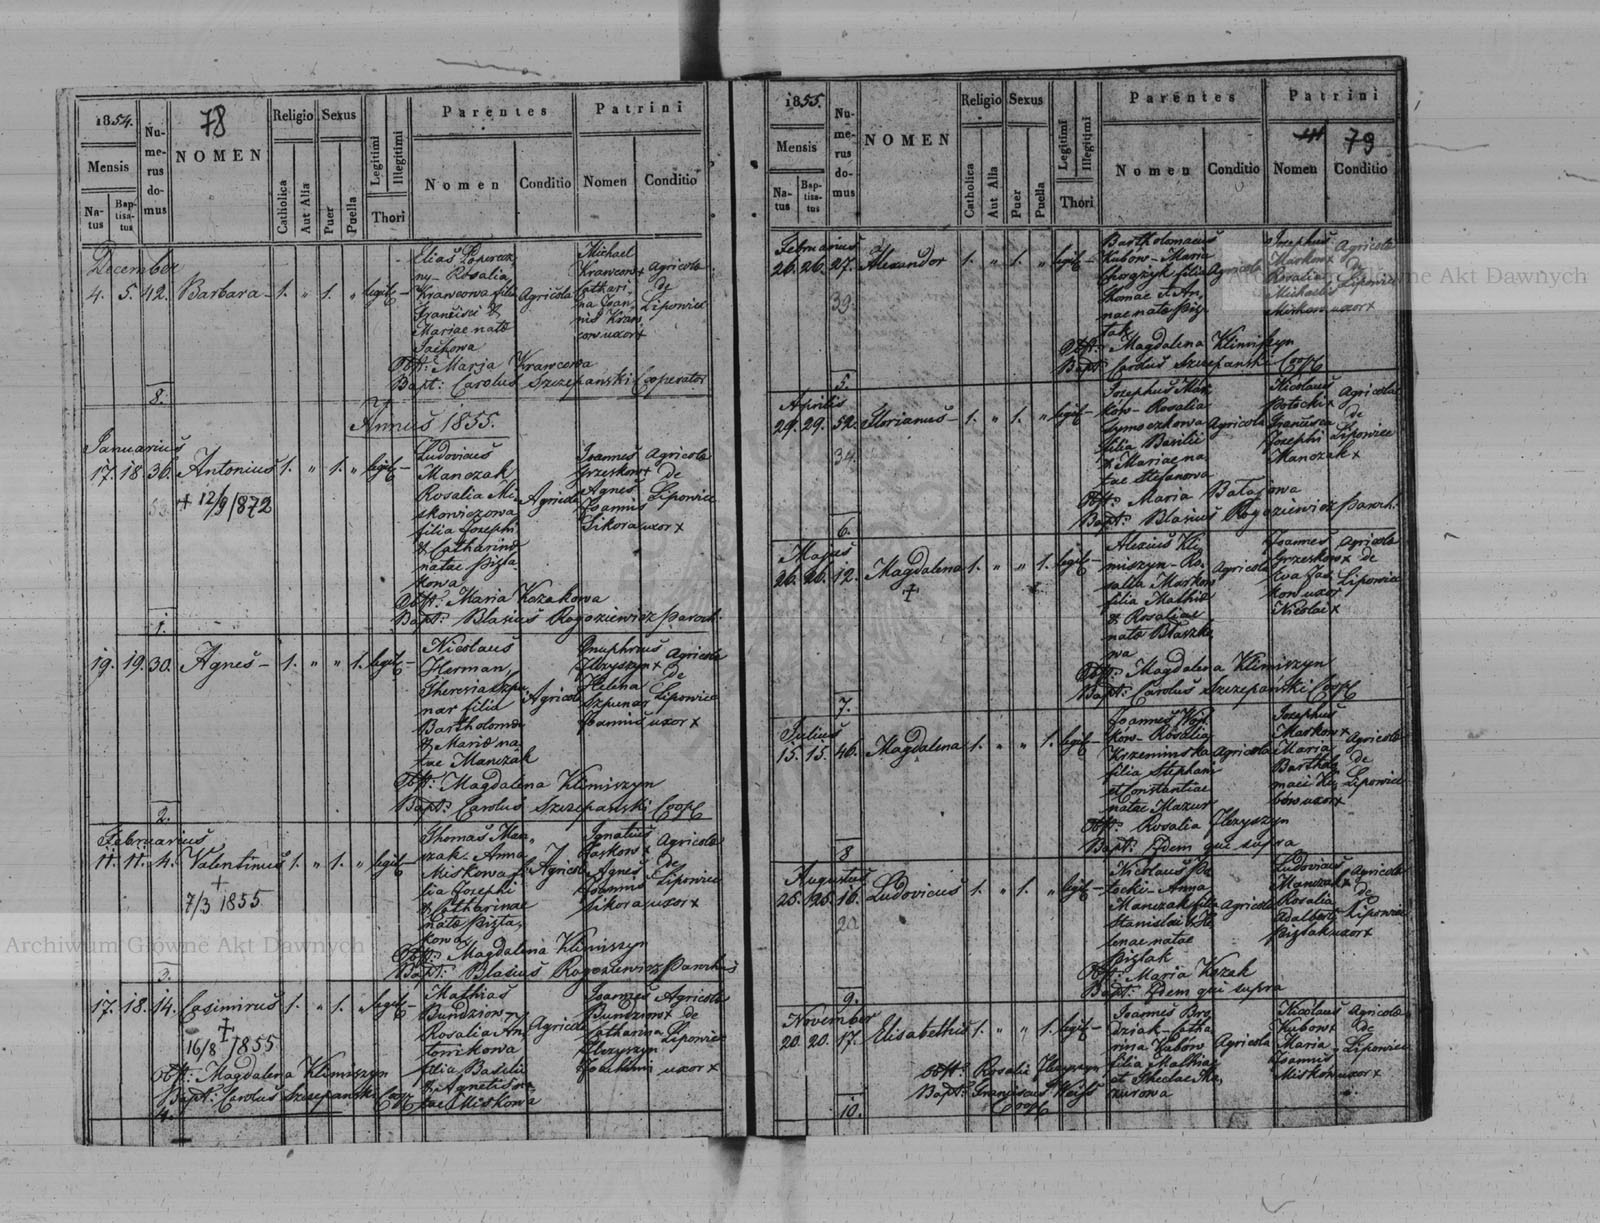 1854.
78
Numerus domus
NOMEN
Religio
Sexus
Legitimi
Illegitimi
Parentes
Patrini
Mensis
Catholica
Aut Alia
Puer
Puella
Thori
Nomen
Conditio
Nomen
Conditio
Natus
Baptisatus
December
4. 5. 42. Barbara - 1. " 1. " legit-
Elias
ny - Rosalia
Krawcowa filia
Francisci &
Mariae nata
Jachowa
Agricola
Michael
Krawcow x
Cathari
na Joan
nis Kraw
cow uxor x
Agricola
de
Lipowice
Obst: Maria Krawcowa
Bapt: Carolus Szczepański Cooperator
8.
Annus 1855.
Januarius
17. 18. 36. Antonius 1. " 1. " legit-
+ 12/9 1872
Ludovicus
Manczak
Rosalia Mi
skowiczowa
filia Josephi
& Catharina
natae Pizta
kowa
Agricola
Joannes
Grzeskow x
Agnes
Joannis
Sikora uxor x
Agricola
de
Lipowice
Obst: Maria Kozakowa
Bapt: Blasius Rogoziewicz Paroch.
1.
19. 19. 30. Agnes - 1. " " 1. legit-
Nicolaus
Herman
Theresia Szpu
nar filia
Bartholomae
& Maria na
tae Manczak
Agricola
Onuphrius
Ilczyszyn x
Helena
Szpunar
Joannis uxor x
Agricola
de
Lipowice
Obst: Magdalena Klimiszyn
Bapt: Carolus Szczepański Coop
2.
Februarius
11. 11. 4. Valentinus 1. " 1. " legit-
+
7/3 1855
Thomas Man
szak - Anna
Miskowa fi
lia Josephi
& Catharinae
nata Pizta
kowa
Agricola
Ignatius
Jaskow x
Agnes
Joannis
Sikora uxor x
Agricola
de
Lipowice
Obst: Magdalena Klimiszyn
Bapt: Blasius Rogoziewicz Parochus
3.
17. 18. 14. Casimirus 1. " 1. " legit-
+
16/8 1855
Mathias
Bundziow
Rosalia An
tonikowa
filia Basilii
& Agnetis na
tae Miskowa
Agricola
Joannes
Bundziow x
Catharina
Ilczyszyn
Joachimi uxor x
Agricola
de
Lipowice
Obst: Magdalena Klimiszyn
Bapt: Carolus Szczepański Coop
4.
1855.
Numerus domus
NOMEN
Religio
Sexus
Legitimi
Illegitimi
Parentes
Patrini
79
Mensis
Catholica
Aut Alia
Puer
Puella
Thori
Nomen
Conditio
Nomen
Conditio
Natus
Baptisatus
Februarius
26. 26. 27. Alexander 1. " 1. " legit-
39.
Bartholomaeus
Kubow - Maria
Chorążyk filia
Thomae & An
nae nata Piz
tak
Agricola
Josephus
Markow x
Rosalia
Michaelis
Miskow uxor x
Agricola
de
Lipowice
Obst: Magdalena Klimiszyn
Bapt: Carolus Szczepański Coop
5.
Aprilis
29. 29. 52. Florianus - 1. " 1. " legit-
34.
Josephus Mar
kow - Rosalia
Symoczkowa
filia Basilii
& Mariae na
tae Stefanowa
Agricola
Nicolaus
Potocki x
Francisca
Josephi
Manczak x
Agricola
de
Lipowice
Obst: Maria Batogowa
Bapt: Blasius Rogoziewicz Paroch.
6.
Majus
26. 26. 12. Magdalena 1. " " 1. legit-
+
Alexius Kli
miszyn - Ro
salia Markow
filia Mathiae
& Rosaliae
nata Błaszko
wa
Agricola
Joannes
Grzeskow x
Eva Jas
kow uxor
Nicolai x
Agricola
de
Lipowice
Obst: Magdalena Klimiszyn
Bapt: Carolus Szczepański Coop
7.
Julius
15. 15. 46. Magdalena 1. " " 1. legit-
Joannes
kow - Rosalia
Krzeminska
filia Stephani
et Constantiae
natae Mazur
Agricola
Josephus
Markow x
Maria
Bartholo
maei Ku
bow uxor x
Agricola
de
Lipowice
Obst: Rosalia Ilczyszyn
Bapt: Idem qui supra
8
Augustus
25. 25. 16. Ludovicus 1. " 1. " legit-
20
Nicolaus Po
tocki - Anna
Manczak filia
Stanislai & He
lenae natae
Piztak
Agricola
Ludovicus
Manczak x
Rosalia
Adalberti
Piztak uxor x
Agricola
de
Lipowice
Obst: Maria Kozak
Bapt: Idem qui supra
9.
November
20. 20. 17. Elisabetha 1. " " 1. legit-
Joannes Bro
dziak - Catha
rina Kubow
filia Mathiae
et Theclae Ma
zurowa
Agricola
Nicolaus
Kubow x
Maria
Joannis
Miskow uxor x
Agricola
de
Lipowice
Obst: Rosalia Ilczyszyn
Bapt: Franciscus Weiss
Coop
10.
Archiwum Główne Akt Dawnych
Archiwum Główne Akt Dawnych